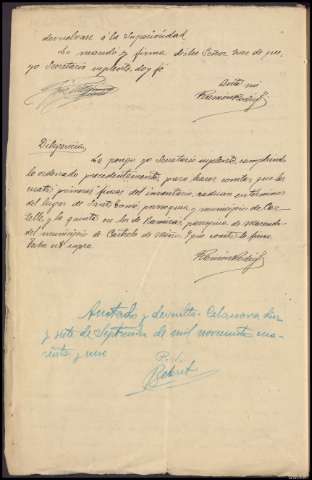 devuelvase á la Superioridad
Lo mandó y firma dicho Señor Juez de que,
yo Secretario suplente, doy fé
Ante mi
Ramón Rodríg
Diligencia,
La pongo yo Secretario suplente, cumpliendo
lo ordenado precedentemente, para hacer constar que las
cuatro primeras fincas del inventario, radican en términos
del lugar de Santomé, parroquia y municipio de Car-
telle, y la quinta en los de parroquia de
del municipio de Castrelo de Miño. Y que conste lo firmo
fecha ut supra.
Ramón Rodríg
Anotado y devuelto. Celanova diez
y siete de Septiembre de mil novecientos cua-
renta y uno